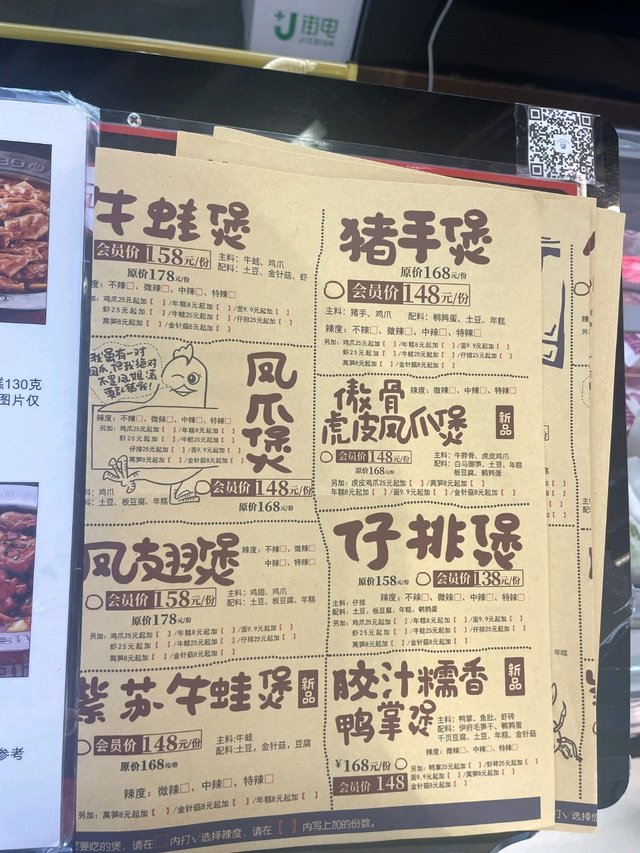 街电
糕130克
图片仅
参考
牛蛙煲
会员价158元/份
原价178元/份
主料：牛蛙、鸡爪
配料：土豆、金针菇、虾
辣度：不辣□、微辣□、中辣□、特辣□
另加：鸡爪25元起加【 】/年糕8元起加【 】/面9.9元起加【 】
虾25元起加【 】/牛蛙25元起加【 】/仔排25元起加【 】
莴笋8元起加【 】/金针菇8元起加【 】
猪手煲
原价168元/份
会员价148元/份
主料：猪手、鸡爪 配料：鹌鹑蛋、土豆、年糕
辣度：不辣□、微辣□、中辣□、特辣□
另加：鸡爪25元起加【 】/年糕8元起加【 】/面9.9元起加【 】
虾25元起加【 】/牛蛙25元起加【 】/仔排25元起加【 】
莴笋8元起加【 】/金针菇8元起加【 】
我虽有一对
凤爪，但我绝对
不是凤姐，表
凤爪煲
辣度：不辣□、微辣□、中辣□、特辣□
另加：鸡爪25元起加【 】/年糕8元起加【 】
虾25元起加【 】/牛蛙25元起加【 】
仔排25元起加【 】/面9.9元起加【 】
莴笋8元起加【 】/金针菇8元起加【 】
会员价148元/份
原价168元/份
料：鸡爪
料：土豆、板豆腐、年糕
傲骨
虎皮凤爪煲
新品
辣度：微辣□、中辣□、特辣□
会员价148元/份
原价168元/份
主料：牛脖骨、虎皮鸡爪
配料：白马御笋、土豆、年糕
板豆腐、鹌鹑蛋
另加：虎皮鸡爪25元起加【 】/莴笋8元起加【 】
年糕8元起加【 】/面9.9元起加【 】/金针菇8元起加【 】
凤翅煲
辣度：不辣□、微辣□
中辣□、特辣□
会员价158元/份
原价178元/份
主料：鸡翅、鸡爪
配料：土豆、板豆腐、年糕
另加：鸡爪25元起加【 】/年糕8元起加【 】/面9.9元起加【 】
虾25元起加【 】/牛蛙25元起加【 】/仔排25元起加【 】
莴笋8元起加【 】/金针菇8元起加【 】
仔排煲
原价158元/份
会员价138元/份
主料：仔排
配料：土豆、板豆腐、年糕、鹌鹑蛋
辣度：不辣□、微辣□、中辣□、特辣□
另加：鸡爪25元起加【 】/年糕8元起加【 】/面9.9元起加【 】
虾25元起加【 】/牛蛙25元起加【 】/仔排25元起加【 】
莴笋8元起加【 】/金针菇8元起加【 】
紫苏牛蛙煲
新品
会员价148元/份
原价168元/份
主料：牛蛙
配料：土豆，金针菇，豆腐
微辣□、中辣□、特辣□
另加：莴笋8元起加【 】/年糕8元起加【 】
/金针菇8元起加【 】
胶汁糯香
鸭掌煲
新品
¥168元/份
会员价 148
主料：鸭掌、鱼肚、虾砖
配料：伊府毛笋干、鹌鹑蛋
千页豆腐、土豆、年糕、金针菇
辣度：微辣□、中辣□、特辣□
另加：鸭掌25元起加【 】/虾砖25元起加【 】
面9.9元起加【 】/莴笋8元起加【 】
年糕8元起加【 】/金针菇8元起加【 】
您要吃的煲，请在□内打√选择辣度，请在【 】内写上加的份数。